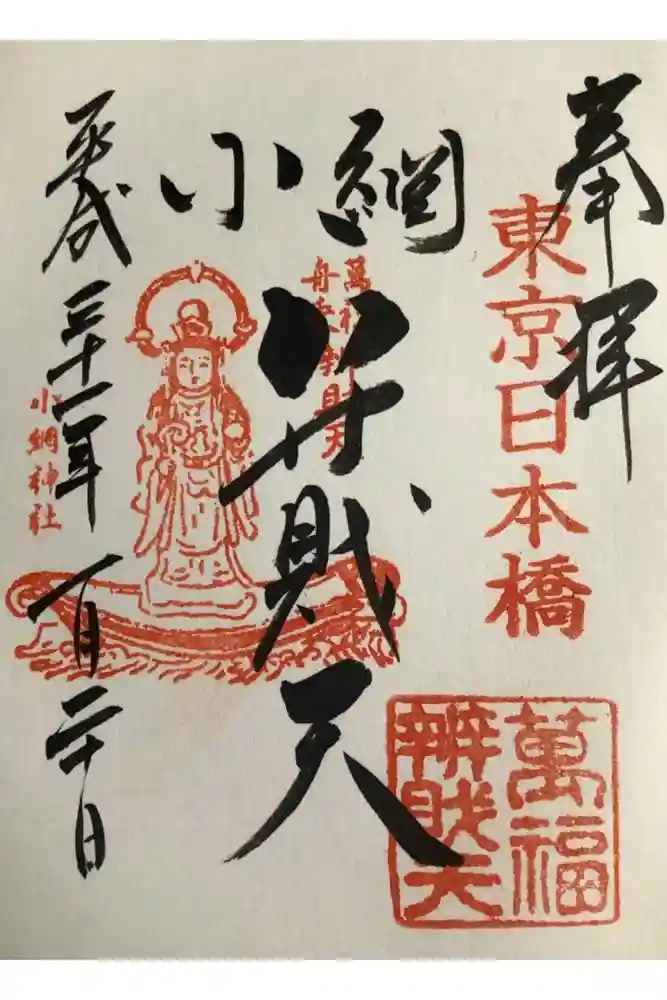 奉拝
東京日本橋
小網
弁財天
萬福
舟乗弁財天
萬福
辨財天
平成三十一年一月二十日
小網神社